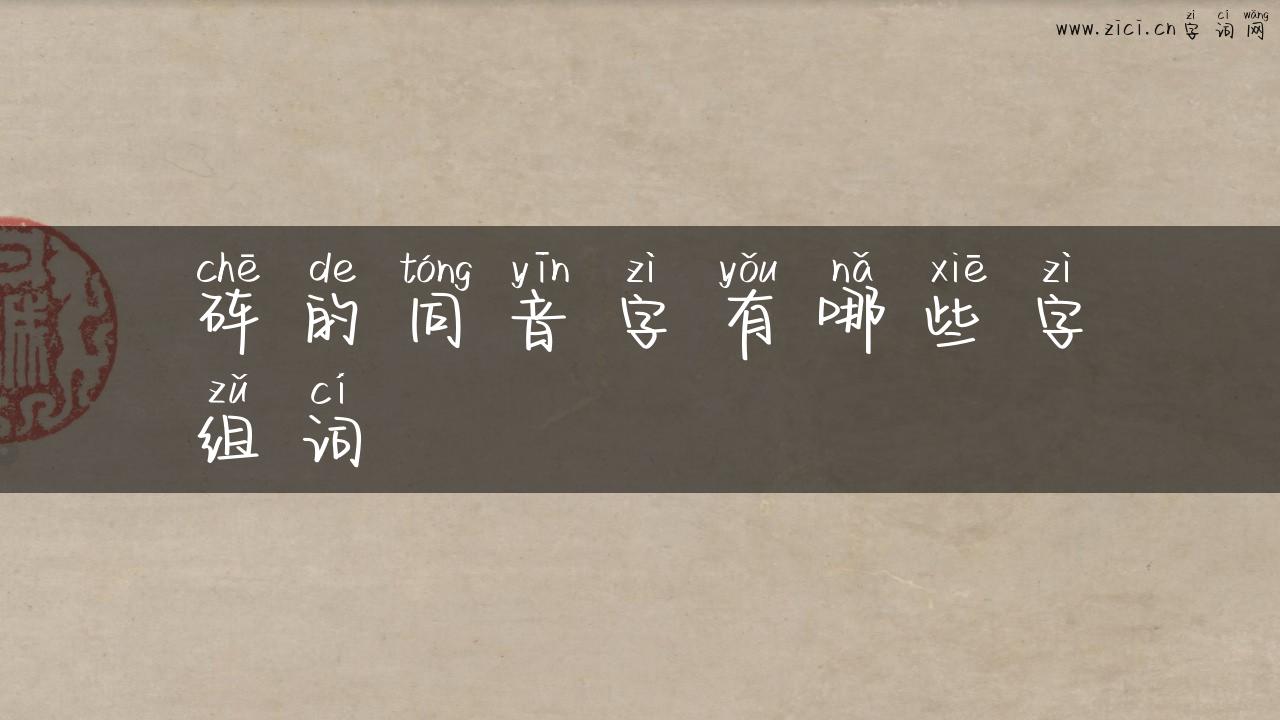 www.zici.cn zì cí wǎng
字词网
chē de tóng yīn zì yǒu nǎ xiē zì
砗的同音字有哪些字
zǔ cí
组词